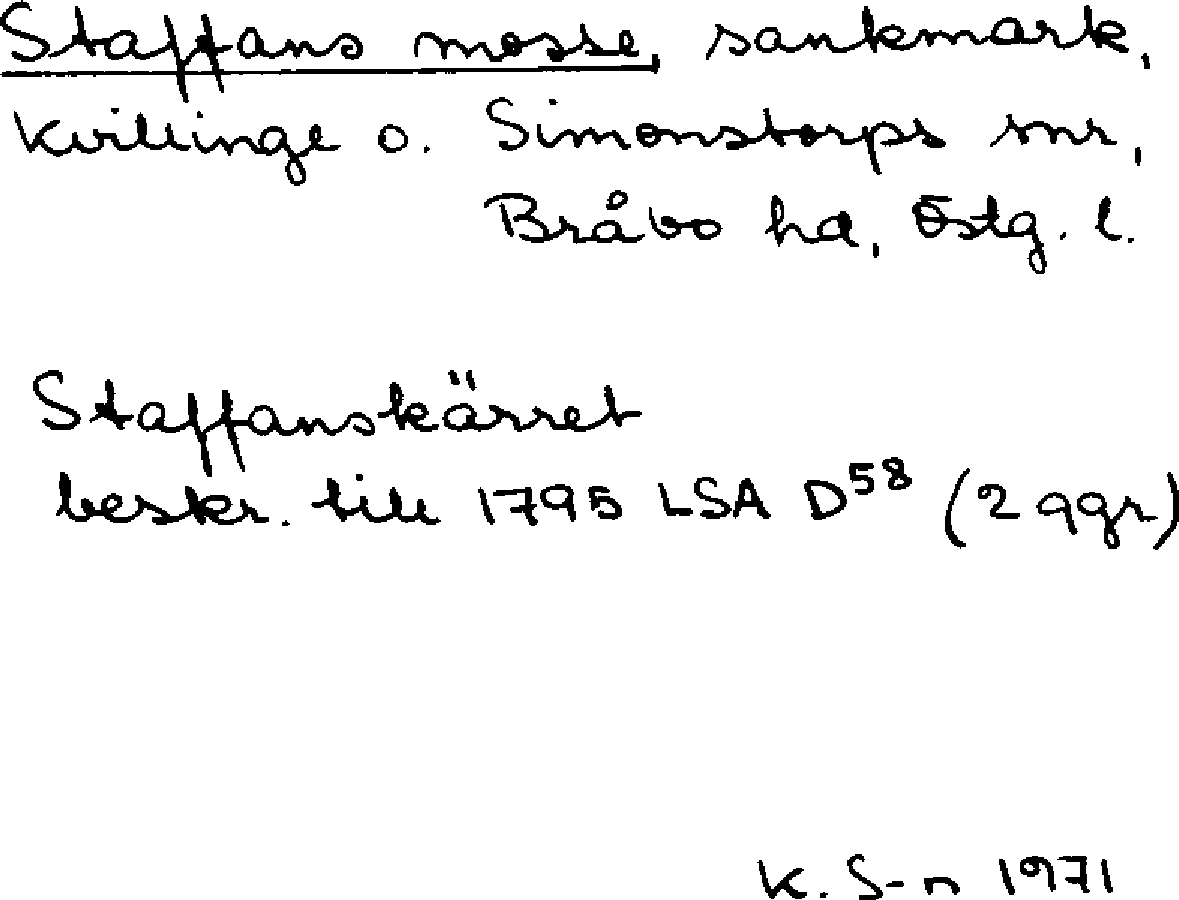 Staffans mosse, sankmark,
Kvillinge o. Simonstorps snr,
Bråbo hd, Östg. l.
Staffanskärret
beskr. till 1795 LSA D58 (2 ggr)
K. S-n 1971